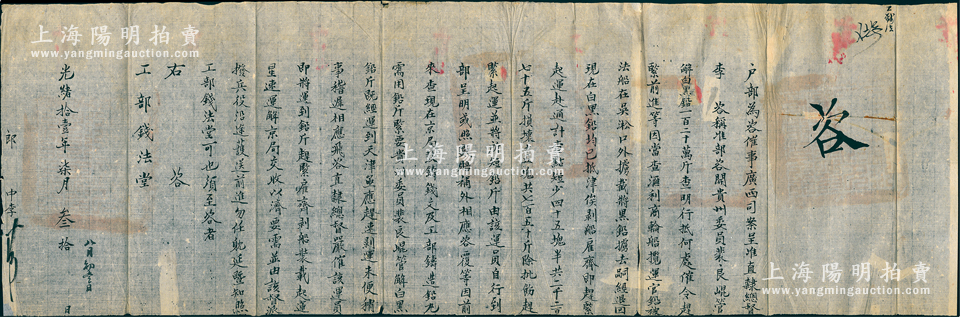 工錢法
咨
戶部為咨催事廣西司案呈准直隸總督
李 咨稱准部咨開貴州委員裴良崐管
解白黑鉛一百二十萬斤查明行抵何處催令趕
緊前進等因當查滙利商輪船攬運官鉛被
法船在吳淞口外擄截將黑鉛擄去嗣經退回
現在白黑鉛均已抵津俟剥船雇齊即趕緊
起運赴通計黑鉛短少四十五塊半共二千二百
七十五斤損壞 共七百五十斤除批飭趕
緊起運並將 鉛斤由該運員自行到
部呈明裁照 稱外相應咨覆等因前
來查現在京局 錢文及工部鑄造鉛丸
需用鉛斤緊要貴州委員裴良崐管解白黑
鉛斤既經運到天津亟應趕速剥運未便稍
事稽遲相應飛咨直隸總督嚴催該運員
即將運到鉛斤趕緊雇齊剥船裝載起運
星速運解京局交收以濟要需並由該督派
撥兵役沿途護送前進勿任躭延暨知照
工部錢法堂可也須至咨者
右 咨
工部錢法堂
光緒拾壹年柒月 叁拾 日
八月初三日
郎 中李
上海陽明拍賣
yangmingauction.com
上海陽明拍賣
www.yangmingauction.com
上海陽明拍賣
www.yangmingauction.com
上海陽明拍賣
www.yangmingauction.com